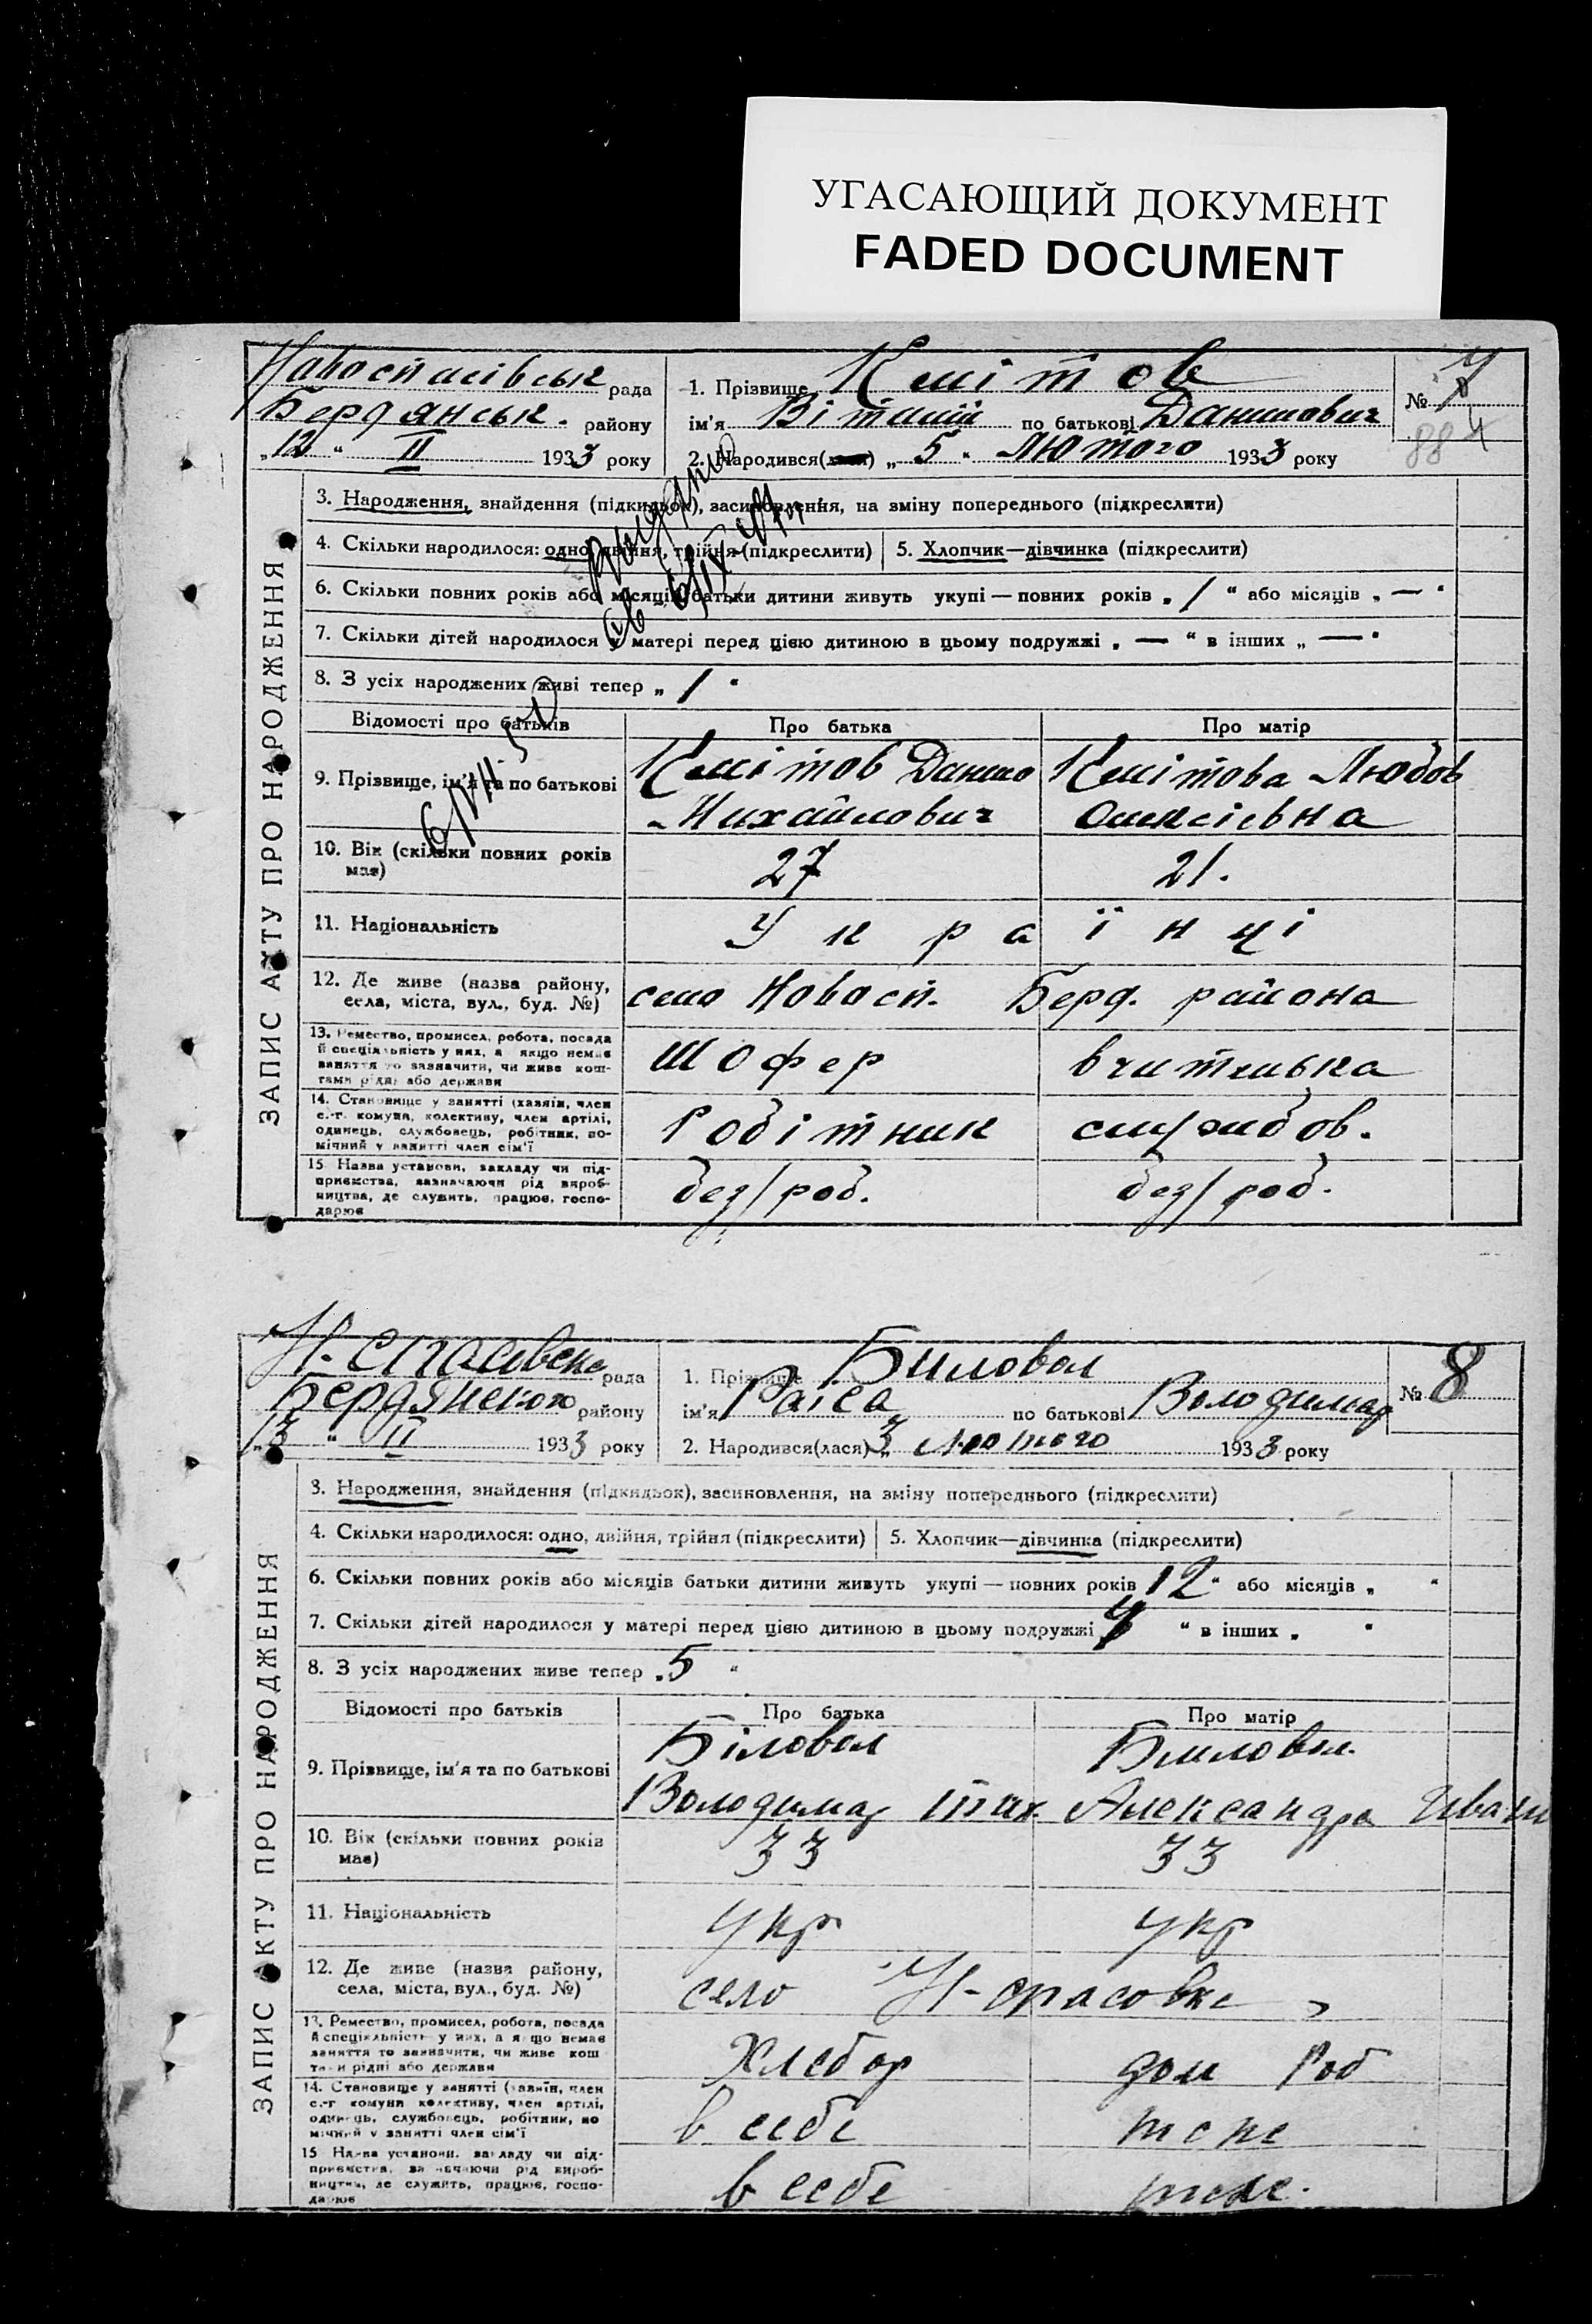 УГАСАЮЩИЙ ДОКУМЕНТ
FADED DOCUMENT
Новоспасівськ рада
Бердянськ. району
„12 “ II 1933 року
1. Прізвище Кмітов
ім'я Віталій по батькові Данилович
2. Народився(лася) „ 5 “ Лютого 1933 року
№ 7
88 4
ЗАПИС АКТУ ПРО НАРОДЖЕННЯ
3. Народження, знайдення (підкидьок), засиновлення, на зміну попереднього (підкреслити)
4. Скільки народилося: одно, двійня, трійня (підкреслити) 5. Хлопчик—дівчинка (підкреслити)
6. Скільки повних років або місяців батьки дитини живуть укупі — повних років „ 1 “ або місяців „ — “
7. Скільки дітей народилося у матері перед цією дитиною в цьому подружжі „ — “ в інших „ — “
8. З усіх народжених живі тепер „ 1 “
Відомості про батьків Про батька Про матір
9. Прізвище, ім'я та по батькові
Кмітов Данило
Михайлович
Кмітова Любов
Олексіевна
10. Вік (скільки повних років
має)
27 21.
11. Національність Українці
12. Де живе (назва району,
села, міста, вул., буд. №)
село Новосп. Берд. района
13. Ремество, промисел, робота, посада
й спеціяльність у них, а якщо немає
заняття то зазначити, чи живе кош-
тами рідні або держави
Шофер вчителька
14. Становище у занятті (хазяїн, член
с.-г. комуни, колективу, член артілі,
одинець, службовець, робітник, по-
мічний у занятті член сім'ї
Робітник службов.
15 Назва установи, закладу чи під-
приємства, зазначаючи рід вироб-
ництва, де служить, працює, госпо-
дарює
без/роб. без/роб.
Н. Спасовске рада
Бердянского району
„13 “ II 1933 року
1. Прізвище Биловол
ім'я Раіса по батькові Володимар
2. Народився(лася) „ 3 Лютого 1933 року
№ 8
ЗАПИС АКТУ ПРО НАРОДЖЕННЯ
3. Народження, знайдення (підкидьок), засиновлення, на зміну попереднього (підкреслити)
4. Скільки народилося: одно, двійня, трійня (підкреслити) 5. Хлопчик—дівчинка (підкреслити)
6. Скільки повних років або місяців батьки дитини живуть укупі — повних років 12 “ або місяців „ “
7. Скільки дітей народилося у матері перед цією дитиною в цьому подружжі “ в інших „ “
8. З усіх народжених живе тепер „5 “
Відомості про батьків Про батька Про матір
9. Прізвище, ім'я та по батькові
Біловол
Володимар Тих.
Биловол
Александра Иван
10. Вік (скільки повних років
має)
33 33
11. Національність укр укр
12. Де живе (назва району,
села, міста, вул., буд. №)
село Н-спасовке
13. Ремество, промисел, робота, посада
й спеціяльність у них, а якщо немає
заняття то зазначити, чи живе кош
тами рідні або держави
Хлебор дом Роб
14. Становище у занятті (хазяїн, член
с.-г комуни колективу, член артілі,
одинець, службовець, робітник, по
мічний у занятті член сім'ї
в себе тоже
15 Назва установи, закладу чи під-
приємства, зазначаючи рід вироб-
ництва, де служить, працює, госпо-
дарює
в себе тоже.